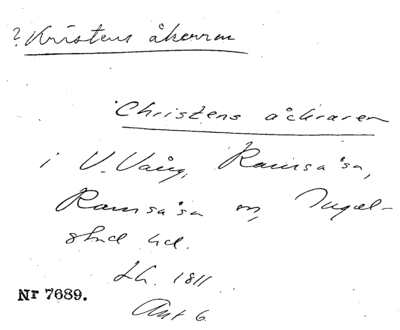 ? Kristens åkerren
Christens åckraren
i V. Vång, Ramsåsa,
Ramsåsa sn, Ingel-
stad hd.
LS. 1811
Akt 6.
Nr 7689.